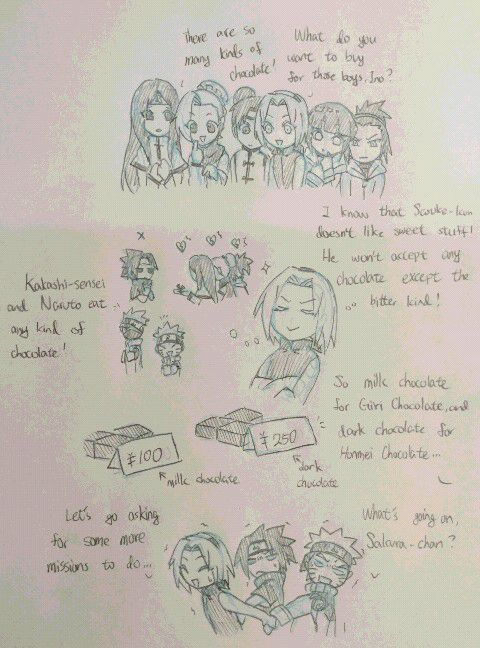 There are so
many kinds of
chocolate!
What do you
want to buy
for those boys, Ino?
I know that Sasuke-kun
doesn't like sweet stuff!
He won't accept any
chocolate except the
bitter kind!
Kakashi-sensei
and Naruto eat
any kind of
chocolate!
So milk chocolate
for Giri Chocolate, and
dark chocolate for
Honmei Chocolate...
¥100
milk chocolate
¥250
dark
chocolate
Let's go asking
for some more
missions to do...
What's going on,
Sakura-chan?